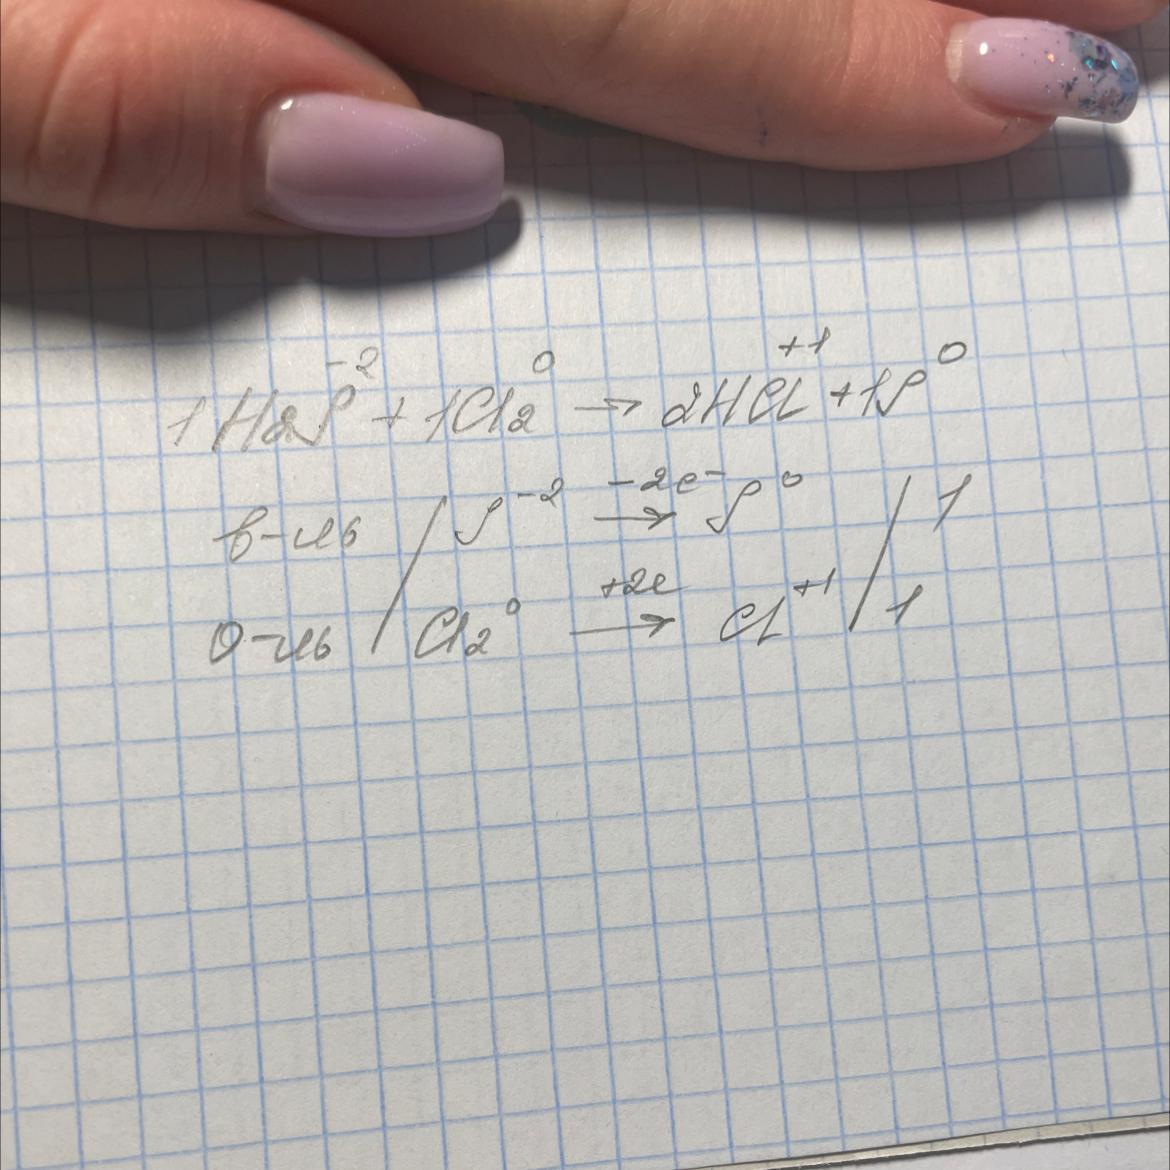 1H₂S⁻² + 1Cl₂⁰ → 2HCl⁺¹ + 1S⁰
в-ль / S⁻² −2e⁻ → S⁰ / 1
о-ль / Cl₂⁰ +2e → Cl⁺¹ / 1